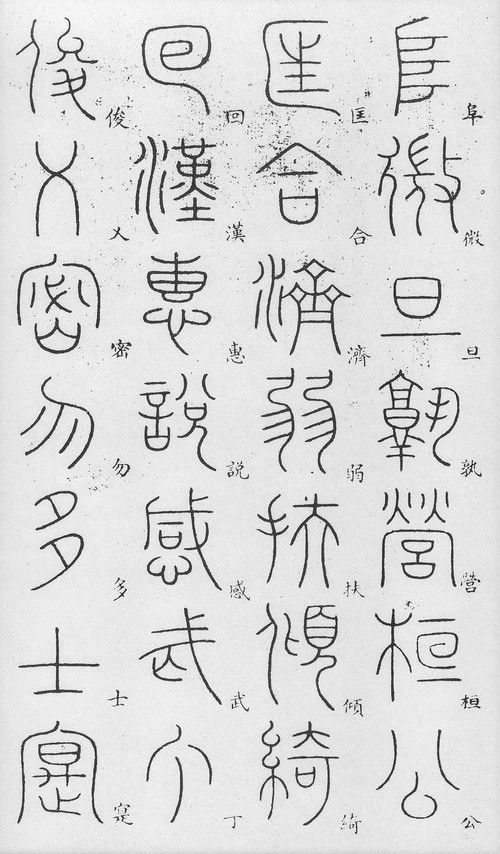 阜微旦孰營桓公
匡合濟弱扶傾綺
回漢惠説感武丁
俊乂密勿多士寔